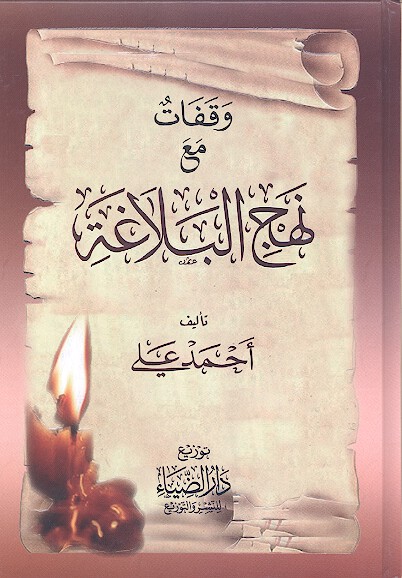 وَقَفَاتٌ
مَعَ
نَهْجِ الْبَلَاغَةِ
تأليف
أَحْمَد عَلِي
توزيع
دَارُ الضِّيَاءِ
لِلنَّشْرِ وَالتَّوْزِيْع